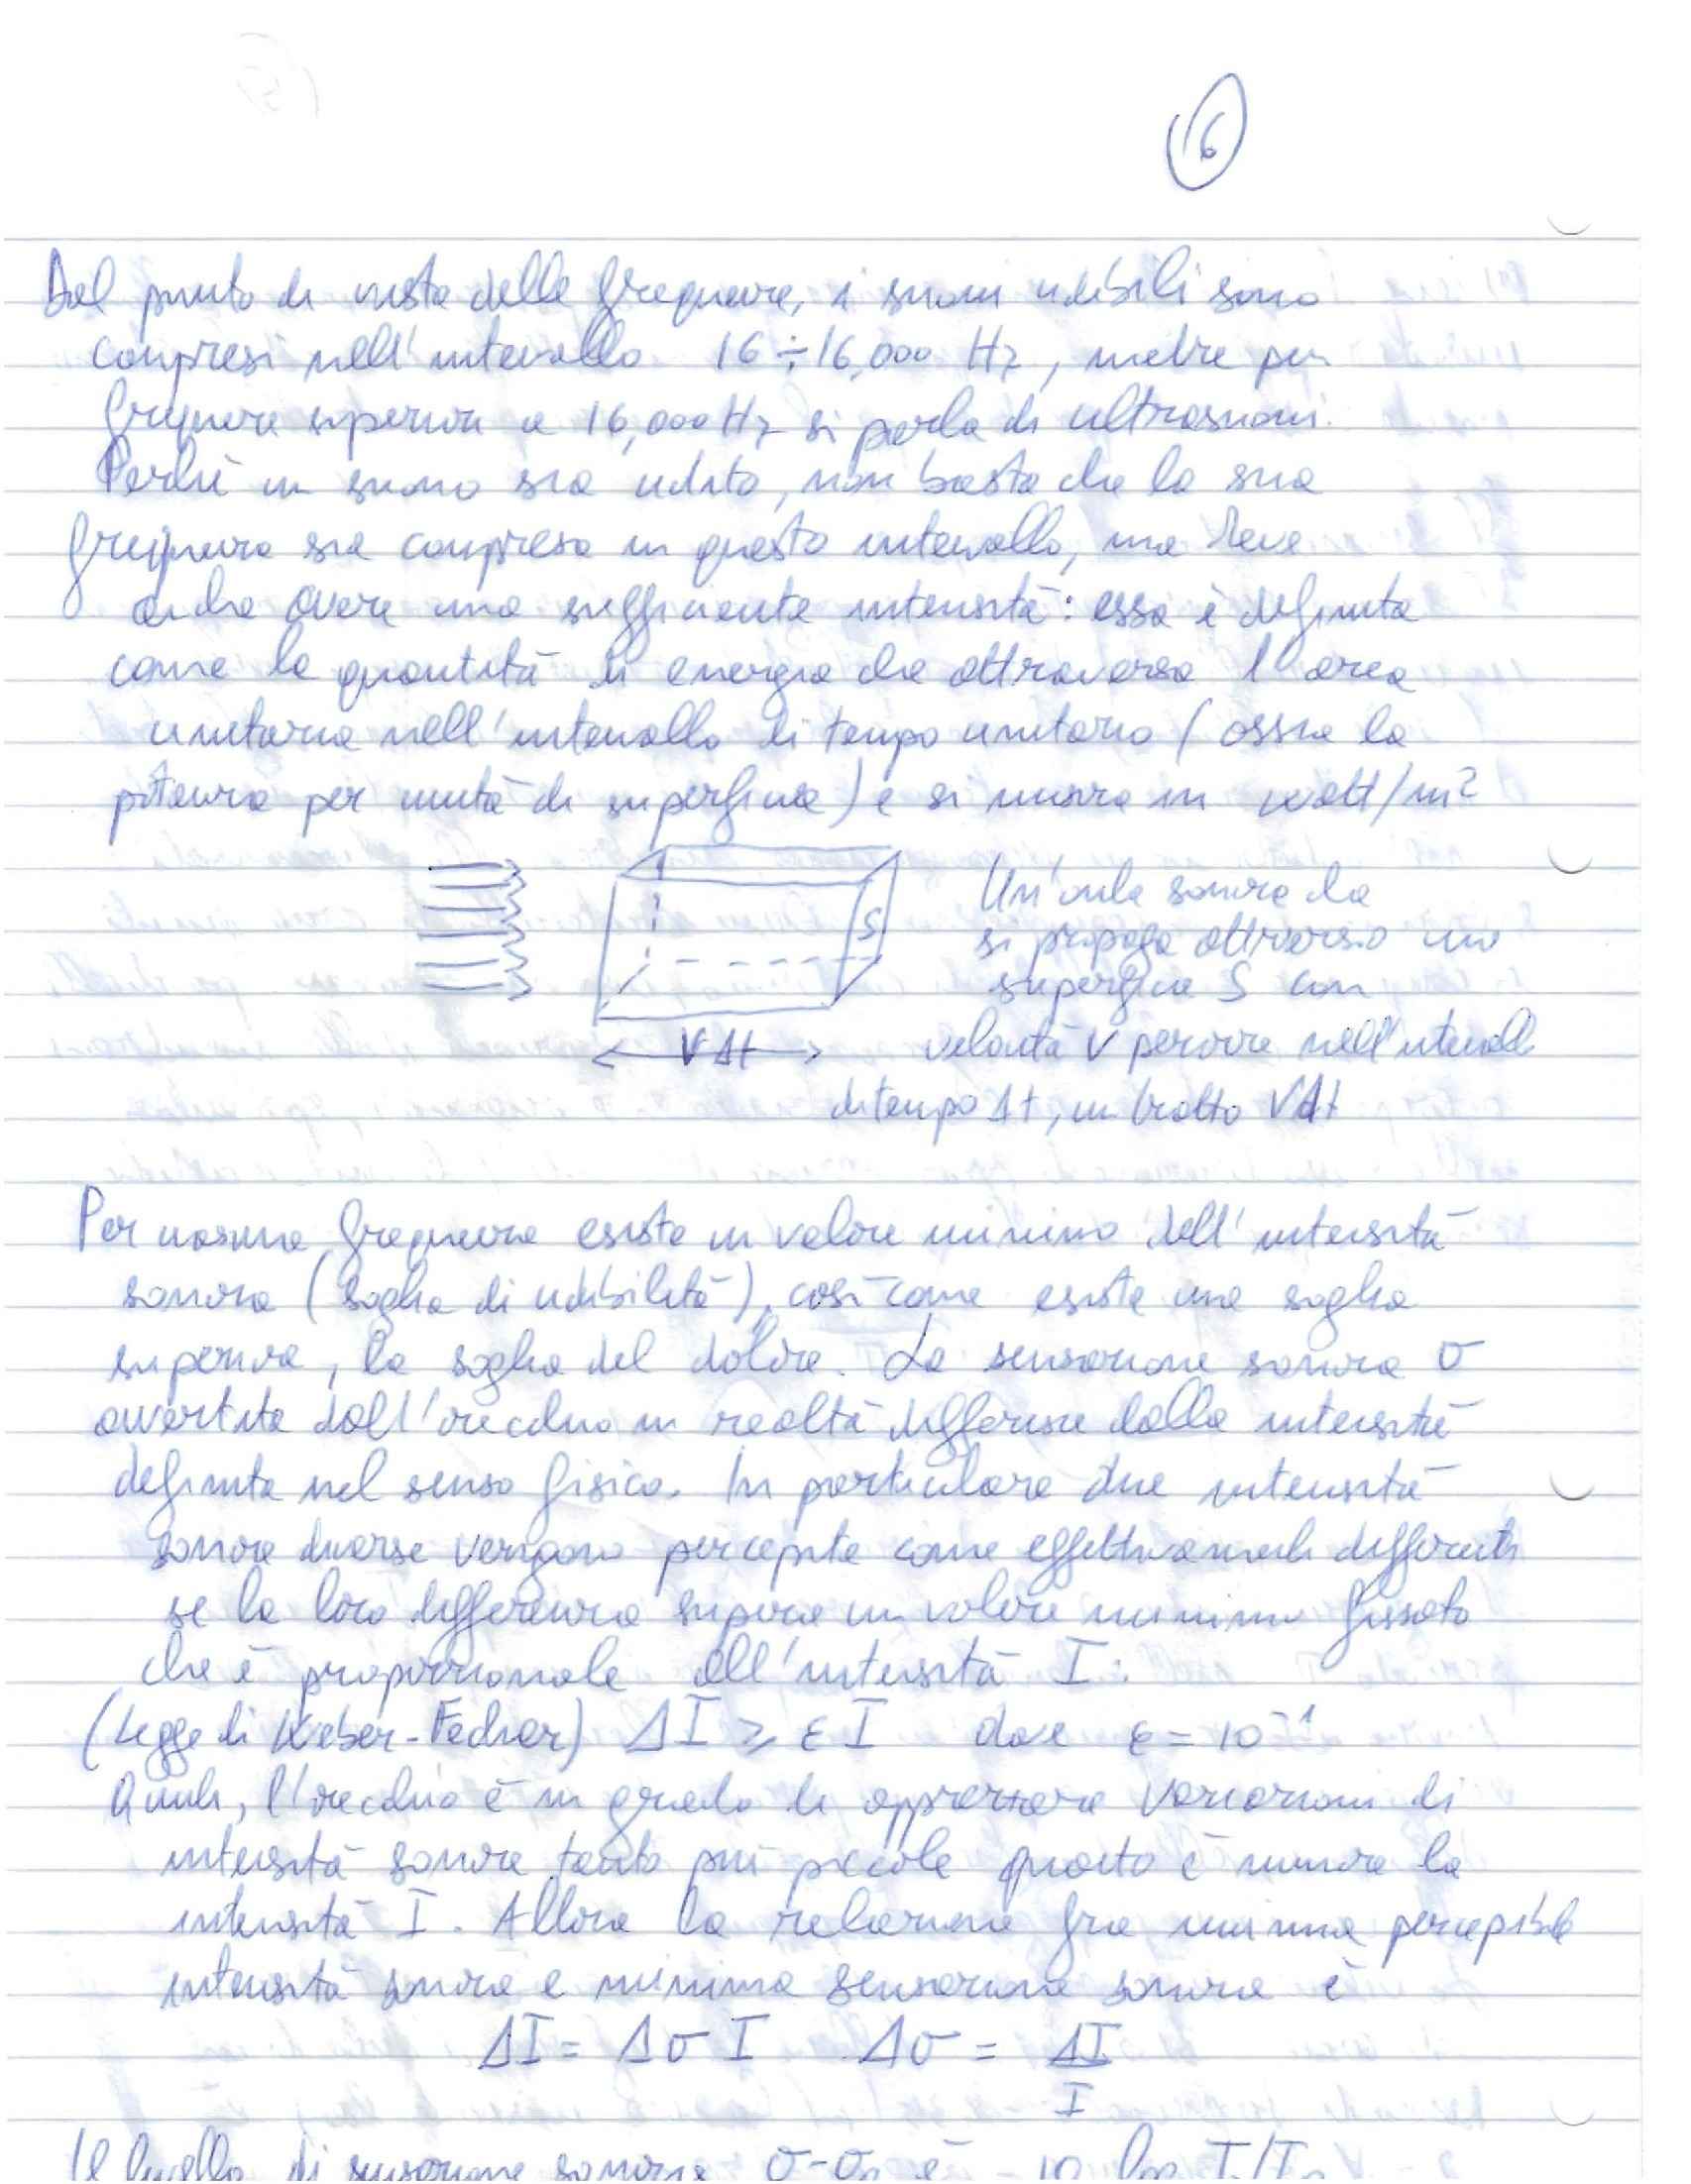 16
Dal punto di vista delle frequenze, i suoni udibili sono
compresi nell'intervallo 16÷16,000 Hz, mentre per
frequenze superiori a 16,000 Hz si parla di ultrasuoni.
Perché un suono sia udito, non basta che la sua
frequenza sia compresa in questo intervallo, ma deve
anche avere una sufficiente intensità: essa è definita
come la quantità di energia che attraversa l'area
unitaria nell'intervallo di tempo unitario (ossia la
potenza per unità di superficie) e si misura in watt/m²
S
VΔt
Un'onda sonora che
si propaga attraverso una
superficie S con
velocità V percorre nell'intervallo
di tempo Δt, un tratto VΔt
Per ciascuna frequenza esiste un valore minimo dell'intensità
sonora (soglia di udibilità), così come esiste una soglia
superiore, la soglia del dolore. La sensazione sonora σ
avvertita dall'orecchio in realtà differisce dalla intensità
definita nel senso fisico. In particolare due intensità
sonore diverse vengono percepite come effettivamente differenti
se la loro differenza supera un valore minimo fissato
che è proporzionale all'intensità I:
(Legge di Weber-Fechner) ΔI ≥ εI dove ε = 10⁻¹
Quindi, l'orecchio è in grado di apprezzare variazioni di
intensità sonora tanto più piccole quanto è minore la
intensità I. Allora la relazione fra minima percepibile
intensità sonora e minima sensazione sonora è
ΔI = Δσ I Δσ = ΔI/I
Il livello di sensazione sonora σ-σ₀ è = 10 log I/I₀